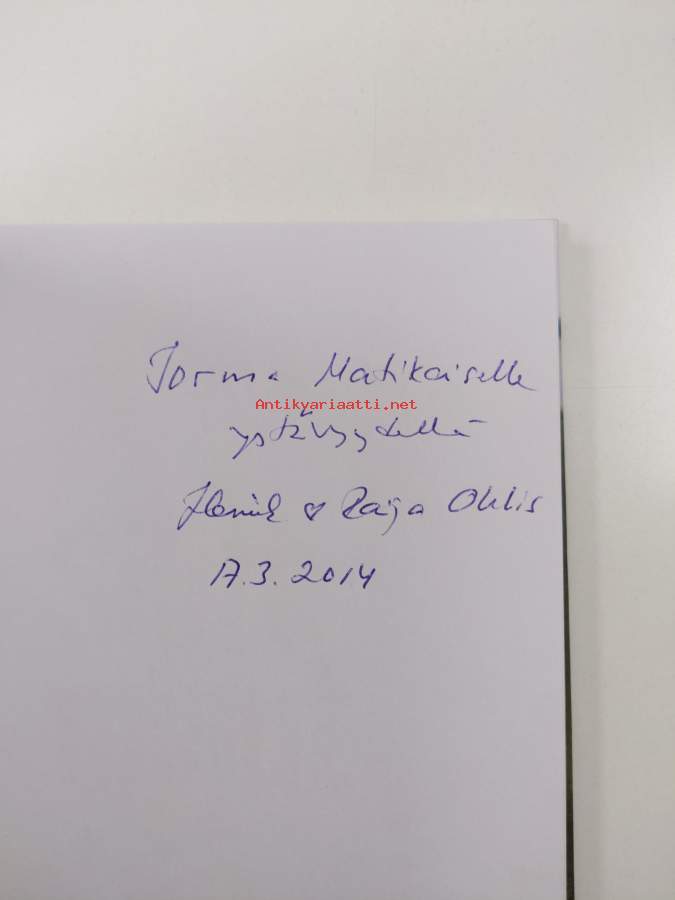 Jorma Matikaiselle
Antikyariaatti.net
ystävyydellä
Henrik & Raija Ohlis
17.3.2014